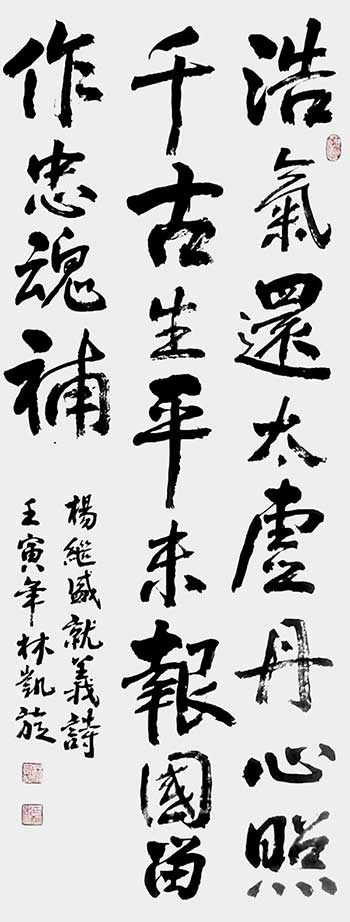 浩氣還太虛丹心照
千古生平未報國留
作忠魂補
楊繼盛就義詩
壬寅年林凱旋